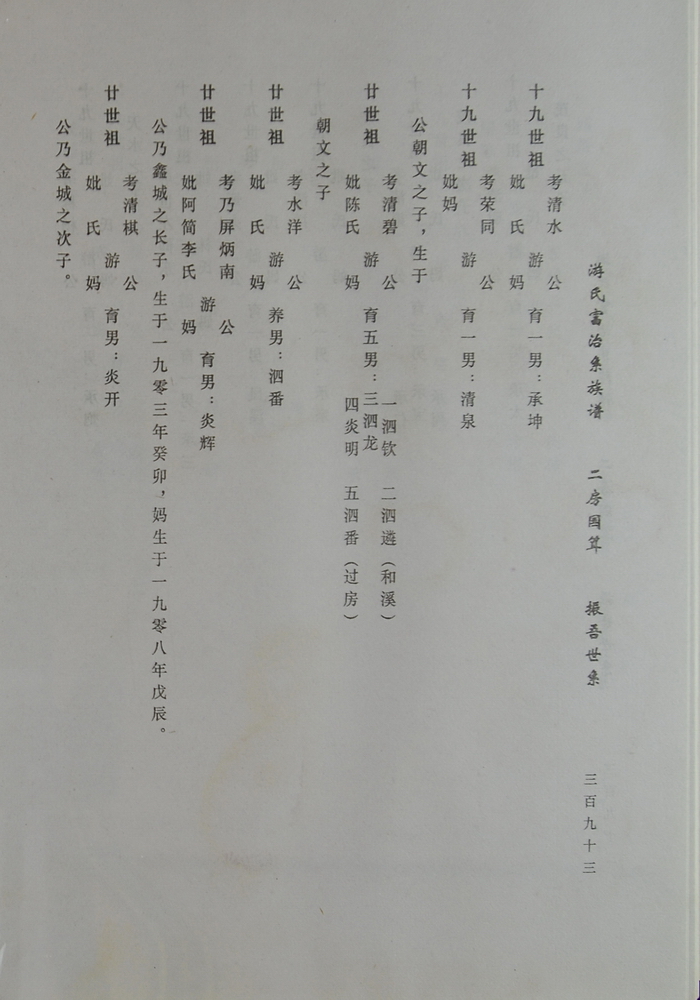 游氏富治系族谱 二房国算 振吾世系 三百九十三
十九世祖 考清水 游 公 育一男：承坤
妣 氏 妈
十九世祖 考荣同 游 公 育一男：清泉
妣妈 妈
公朝文之子，生于
廿世祖 考清碧 游 公 育五男：一泗钦 二泗遴（和溪）
三泗龙
妣陈氏 妈 四炎明 五泗番（过房）
朝文之子
廿世祖 考水洋 游 公 养男：泗番
妣 氏 妈
廿世祖 考乃屏炳南 游 公 育男：炎辉
妣阿简李氏 妈
公乃鑫城之长子，生于一九零三年癸卯，妈生于一九零八年戊辰。
廿世祖 考清棋 游 公 育男：炎开
妣 氏 妈
公乃金城之次子。